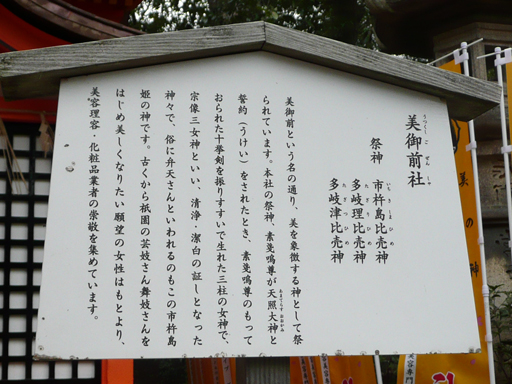 美御前社
うつくしごぜんしゃ
祭神 市杵島比売神
いちきしまひめ
多岐理比売神
たぎりひめ
多岐津比売神
たぎつひめ
美御前という名の通り、美を象徴する神として祭
られています。本社の祭神、素戔嗚尊が天照大神と
あまてらすおおかみ
誓約（うけい）をされたとき、素戔嗚尊のもって
おられた十拳剣を振りすすいで生れた三柱の女神で、
宗像三女神といい、清浄・潔白の証しとなった
神々で、俗に弁天さんといわれるのもこの市杵島
姫の神です。古くから祇園の芸妓さん舞妓さんを
はじめ美しくなりたい願望の女性はもとより、
美容理容・化粧品業者の崇敬を集めています。
美の神
美容専門